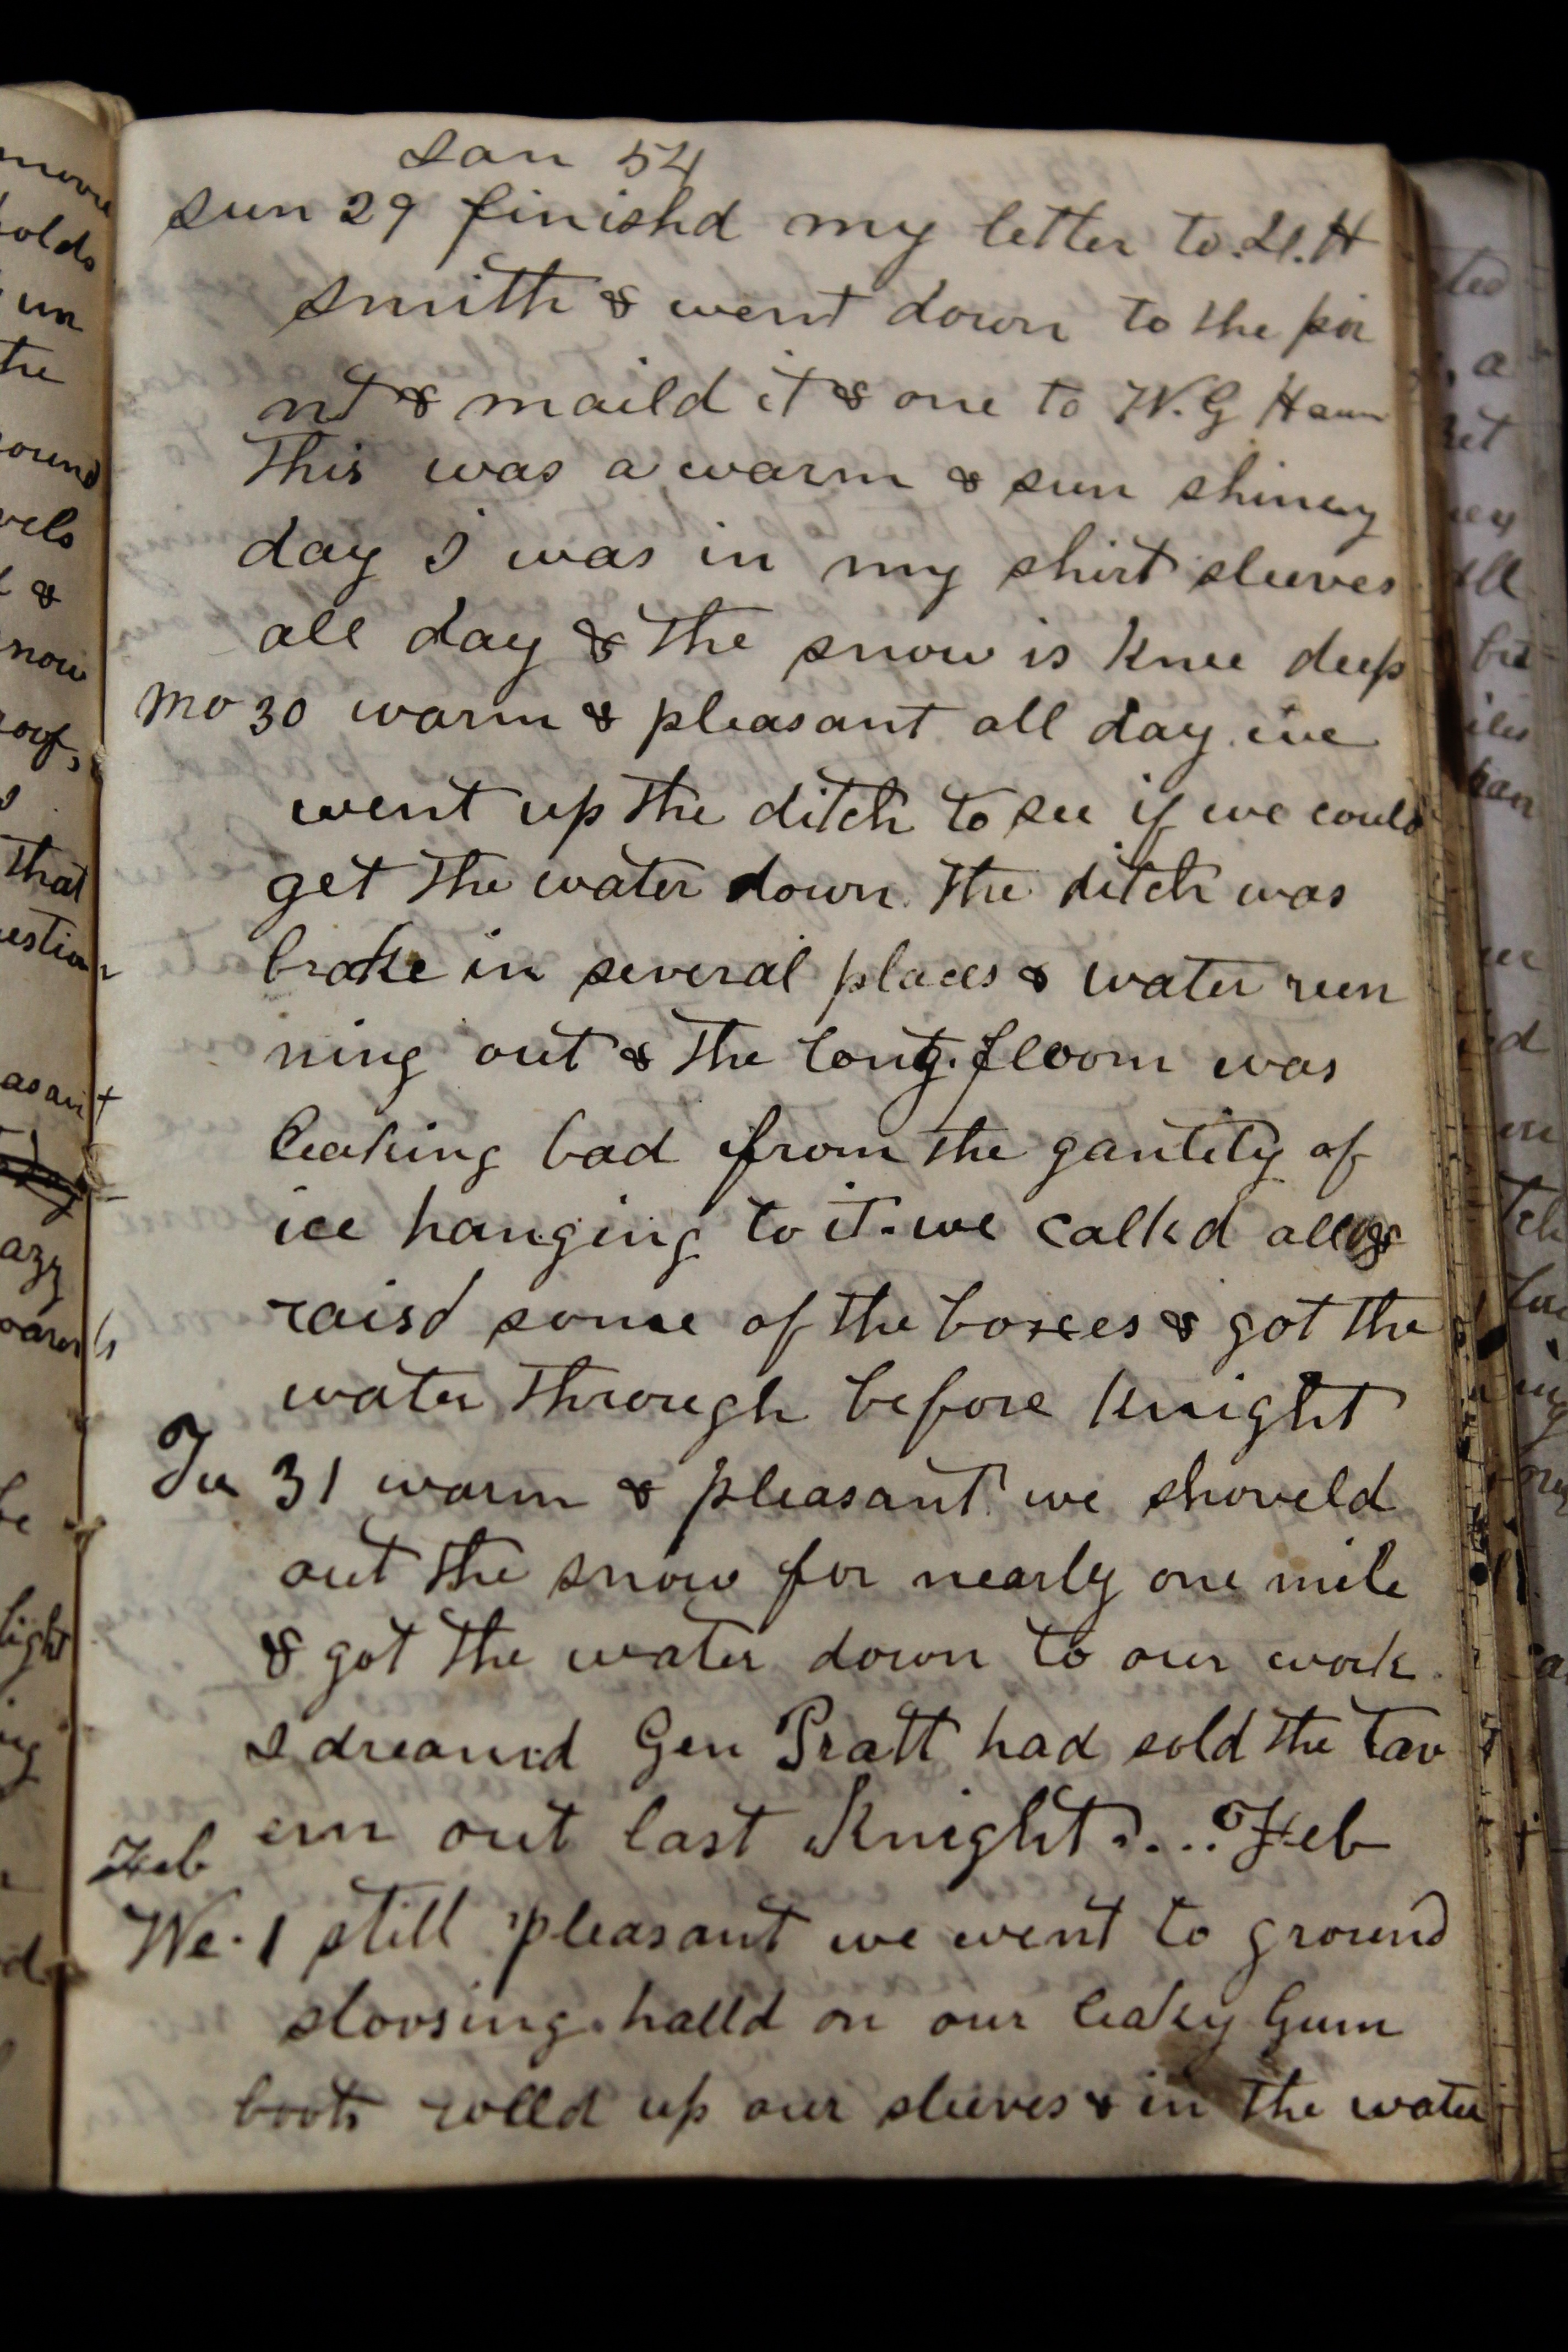 Jan 54
Sun 29 finishd my letter to H. H
Smith & went down to the poi
nt & maild it & one to W. G Haun
This was a warm & sun shiney
day I was in my shirt sleeves
all day & the snow is knee deep
Mo 30 warm & pleasant all day we
went up the ditch to see if we could
get the water down. the ditch was
broke in several places & water run
ning out & the long floom was
leaking bad from the qantity of
ice hanging to it. we calkd all &
raisd some of the boxes & got the
water through before knight
Tu 31 warm & pleasant we shoveld
out the snow for nearly one mile
& got the water down to our work.
I dreamd Gen Pratt had sold the tav
ern out last Knight.... Feb
Feb
We. 1 still pleasant we went to ground
sloosing. halld on our leaky Gum
boots rolld up our sleeves & in the water